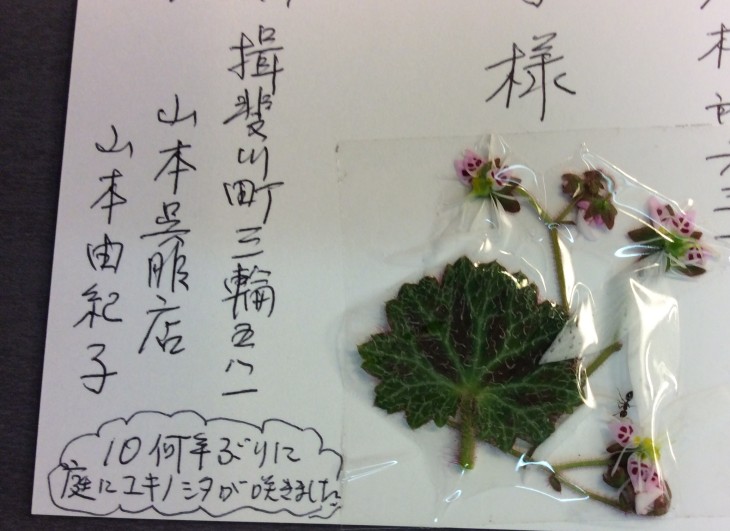 様
揖斐川町三輪五八一
山本呉服店
山本由紀子
10何年ぶりに
庭にユキノシタが咲きました